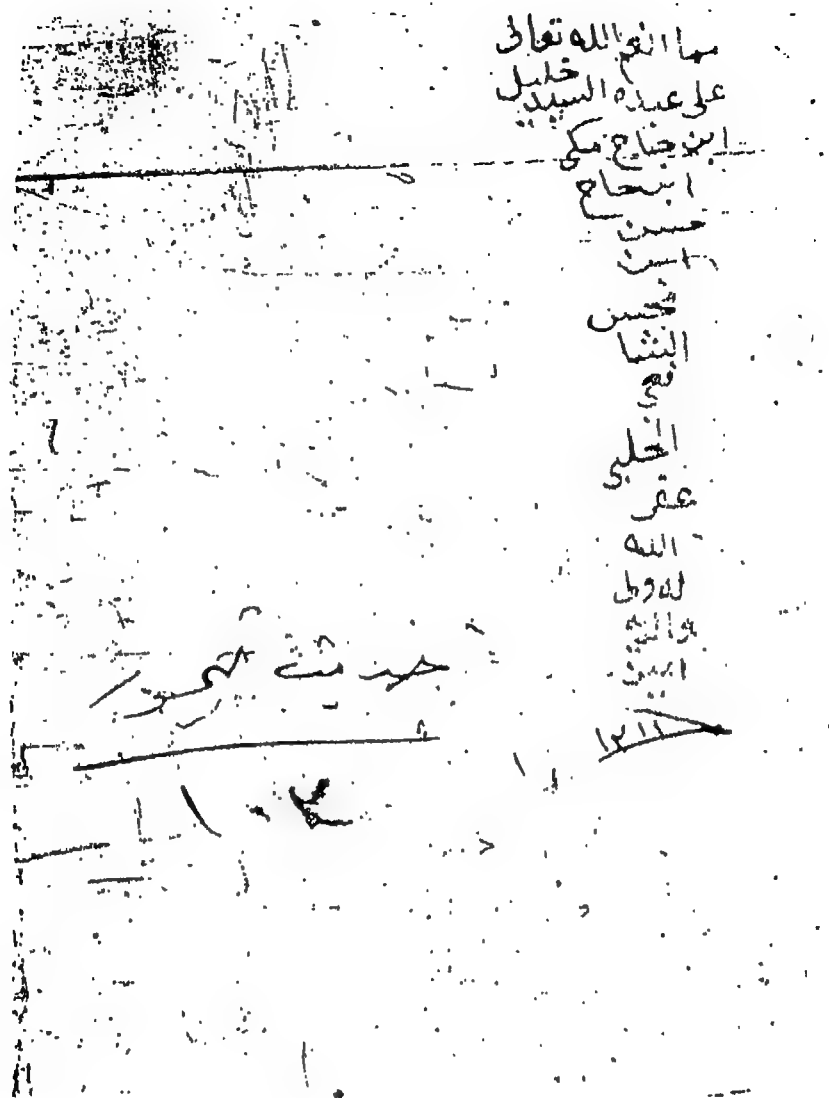 مما انعم الله تعالى
على عبده السيد خليل
ابن حاج مكي
ابن حاج
حسن
ابن
محسن
الشا
فعي
الحلبي
غفر
الله
ولوا
لديه
امين
١٢١١
حديث
١٠٤